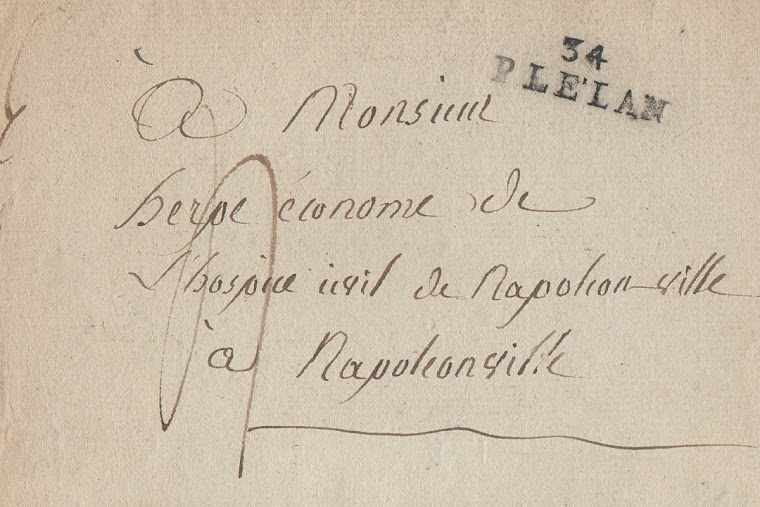 34
PLÉLAN
à Monsieur
herpe économe de
L'hospice civil de Napoléon-ville
à Napoléonville